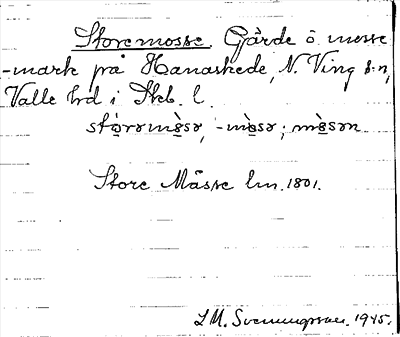 Storemosse, Gärde o. mosse
-mark på Hanaskede, N. Ving s:n,
Valle hd i Skb. l.
stórɷmɷ̀sɷ, -mɷ̀sɷ; mɷ̀sɷn
Store Måsse lm. 1801.
L M. Svenungsson. 1945.